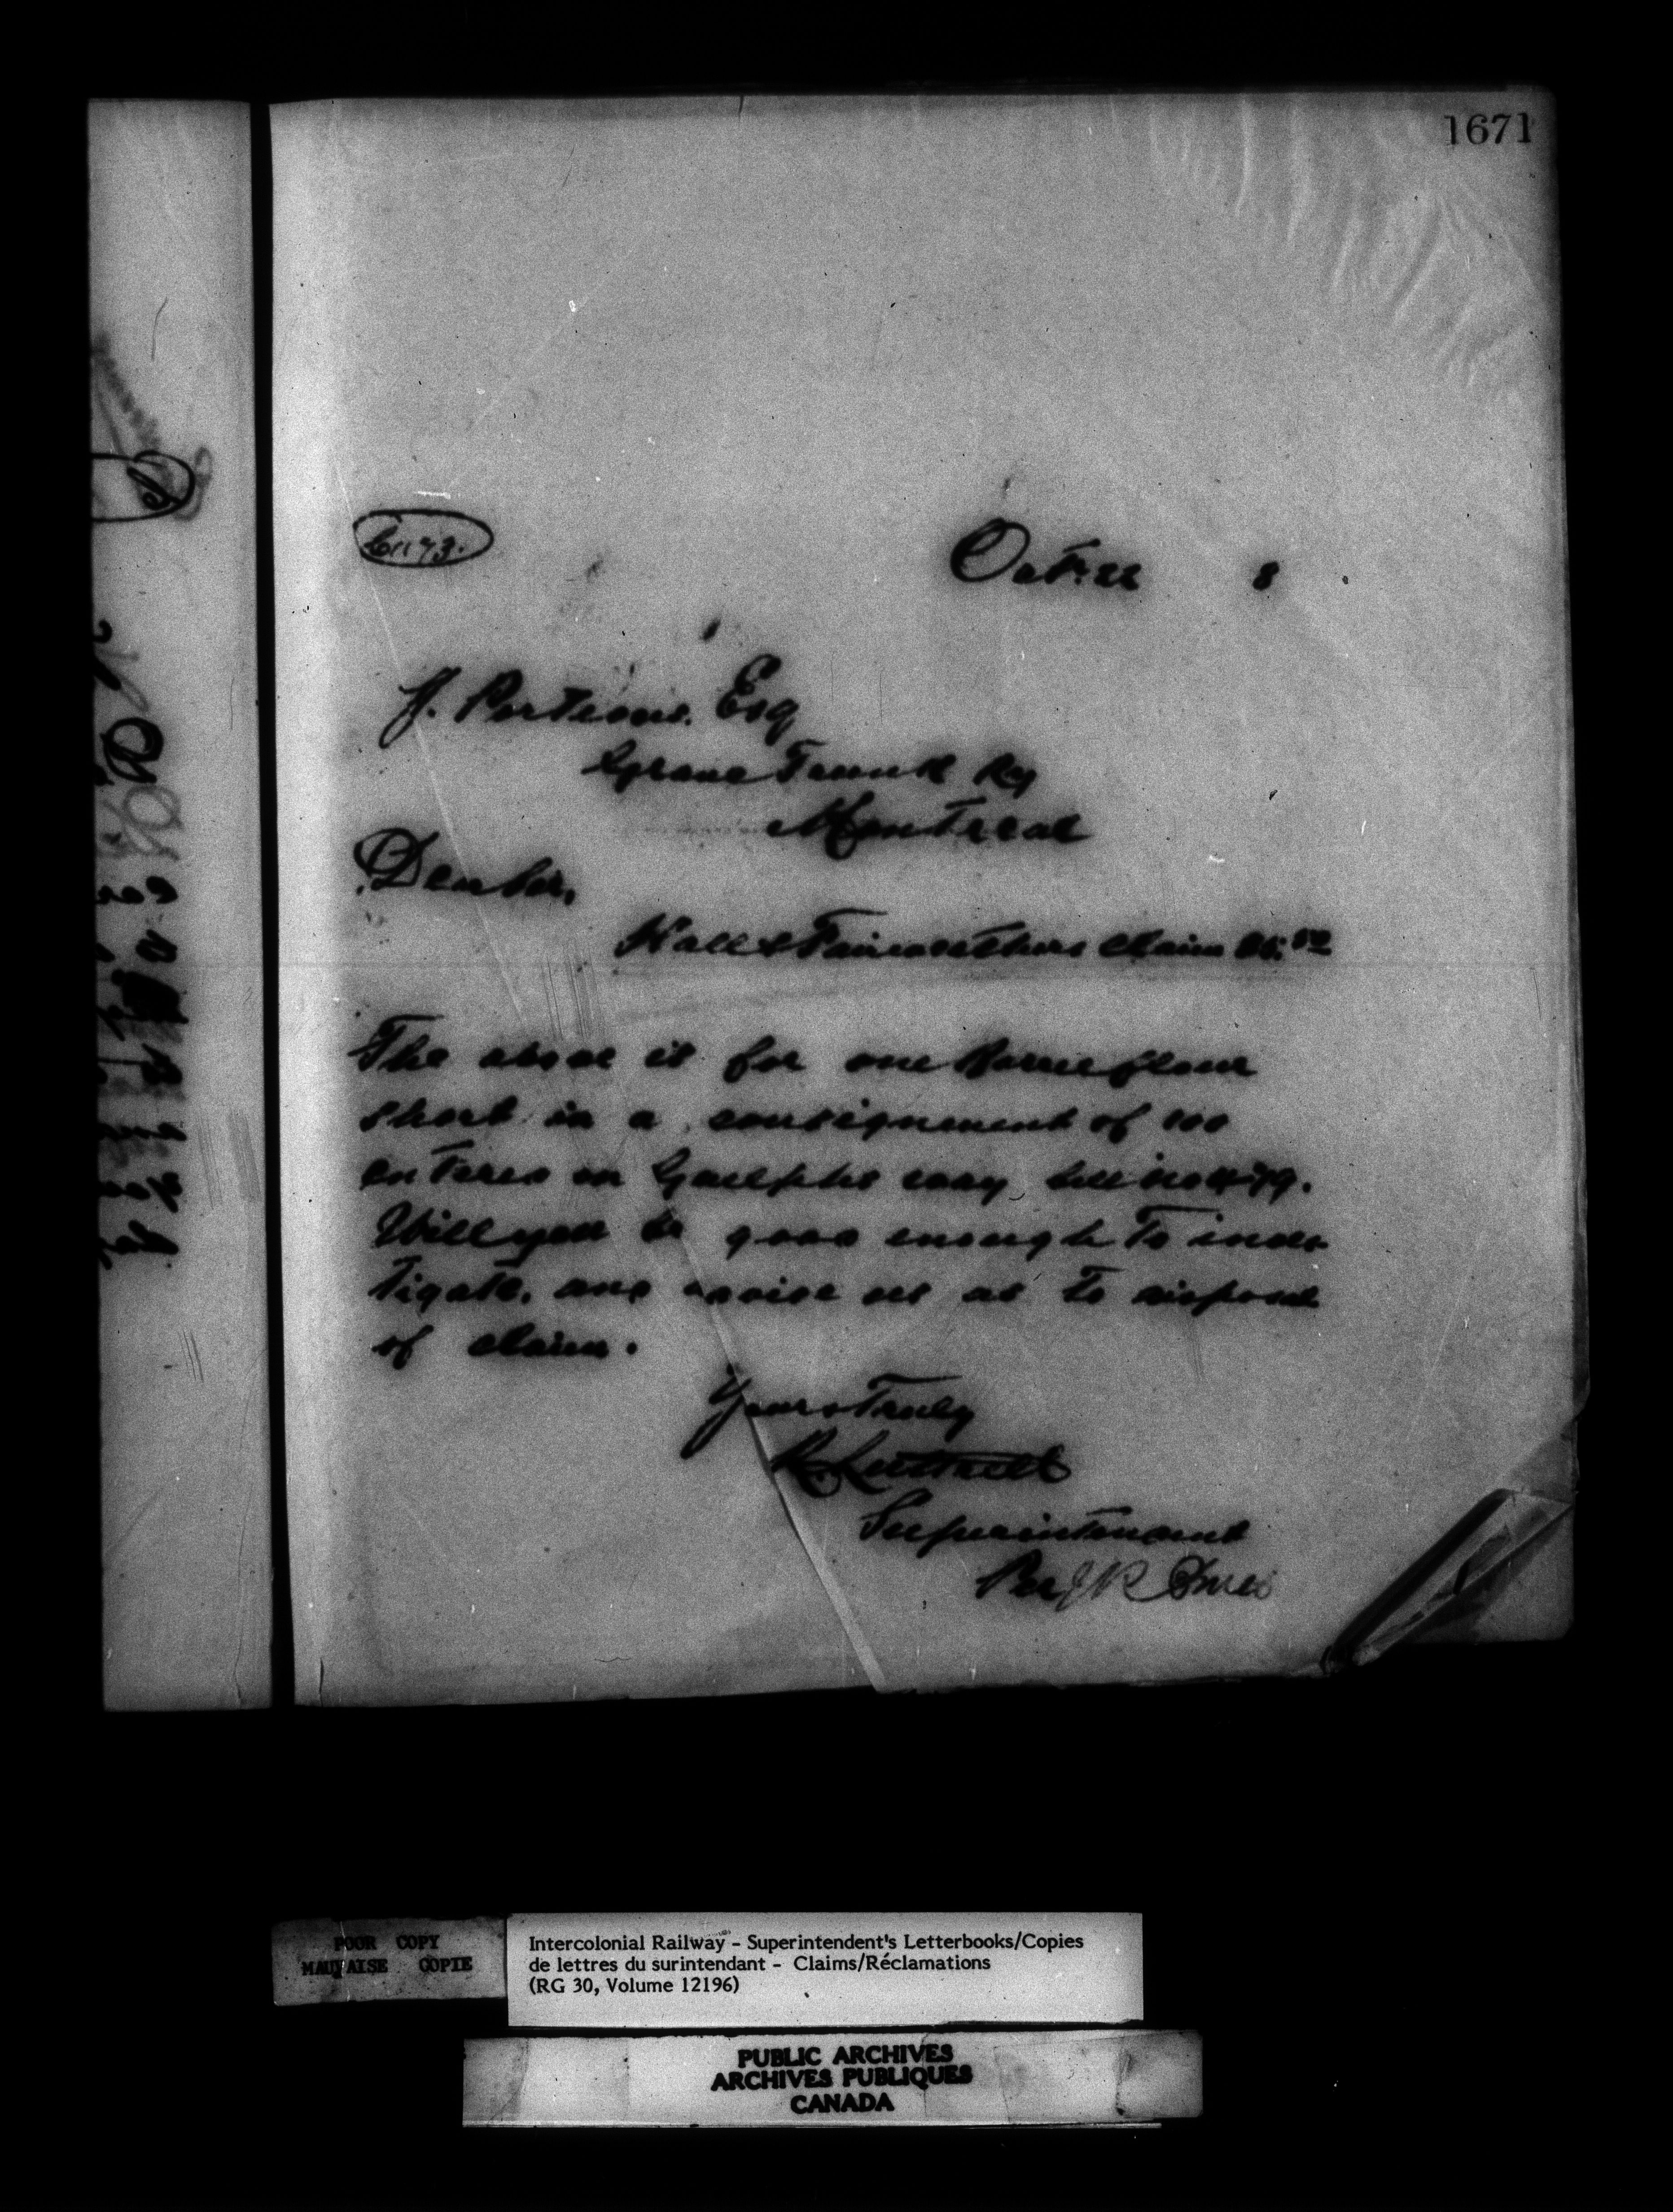 1671
Oct. 22 8
J. Porteous. Esq
Grand Trunk Ry
Montreal
Dear Sir,
Hall & Fairweathers Claim
The above is for one Barrel flour
short in a consignment of 100
entered on Guelphs way bill
Will you be good enough to inves
tigate. and advise us as to disposal
of claim.
Yours Truly
R. Luttrell
Superintendent
Per J R
POOR COPY
MAUVAISE COPIE
Intercolonial Railway - Superintendent's Letterbooks/Copies
de lettres du surintendant - Claims/Réclamations
(RG 30, Volume 12196)
PUBLIC ARCHIVES
ARCHIVES PUBLIQUES
CANADA